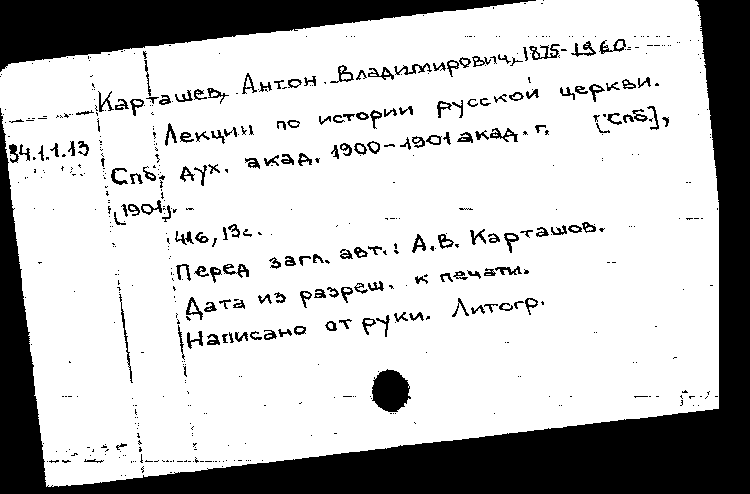 Карташев, Антон Владимирович, 1875-1960
Лекции по истории русской церкви.
34.1.1.13
Спб. дух. акад. 1900-1901 акад. г. [Спб.],
[1901].
416, 13 с.
Перед загл. авт.: А.В. Карташов.
Дата из разреш. к печати.
Написано от руки. Литогр.